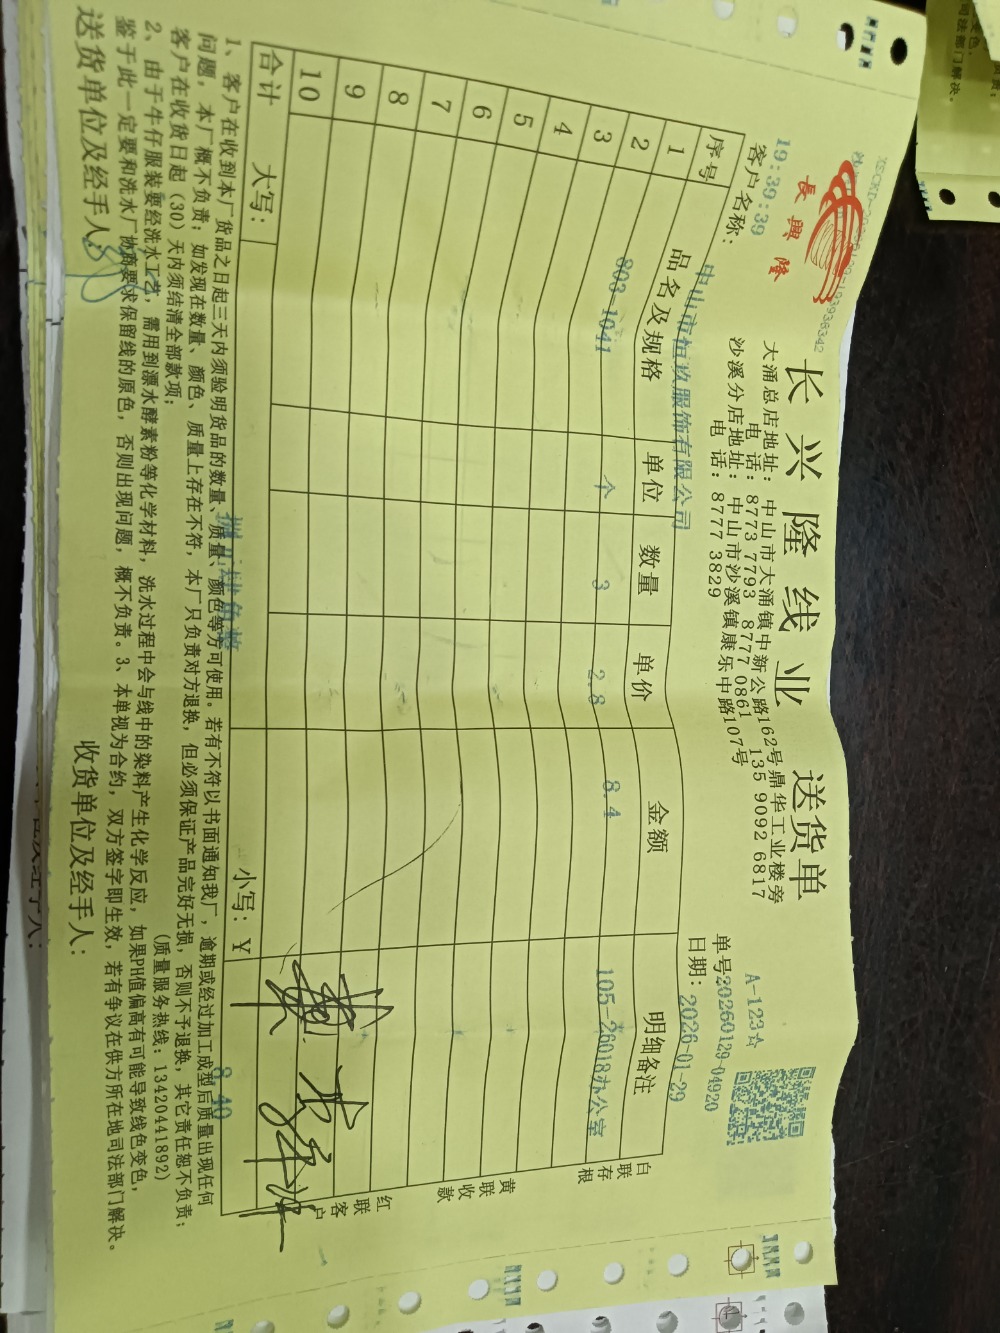 長興隆
长兴隆线业 送货单
大涌总店地址：中山市大涌镇中新公路162号鼎华工业楼旁
电话：8773 7793 8777 0861 135 9092 6817
沙溪分店地址：中山市沙溪镇康乐中路107号
电话：8777 3829
A-123☆
单号:20260129-04920
19:39:39
客户名称：中山市恒玖服饰有限公司
日期：2026-01-29
序号 品名及规格 单位 数量 单价 金额 明细备注
1 803-1041 个 3 2.8 8.4 105-26018办公室
2
3
4
5
6
7
8
9
10
合计 大写： 捌元肆角整 小写：￥ 8.40
白联存根
黄联收款
红联客户
1、客户在收到本厂货品之日起三天内须验明货品的数量、质量、颜色等方可使用。若有不符以书面通知我厂，逾期或经过加工成型后质量出现任何
问题，本厂概不负责；如发现在数量、颜色、质量上存在不符，本厂只负责对方退换，但必须保证产品完好无损，否则不予退换，其它责任恕不负责；
客户在收货日起（30）天内须结清全部款项； （质量服务热线：13420441892）
2、由于牛仔服装要经洗水工艺，需用到漂水酵素粉等化学材料，洗水过程中会与线中的染料产生化学反应，如果PH值偏高有可能导致线色变色，
鉴于此一定要和洗水厂协商要求保留线的原色，否则出现问题，概不负责。3、本单视为合约，双方签字即生效，若有争议在供方所在地司法部门解决。
送货单位及经手人： 收货单位及经手人：